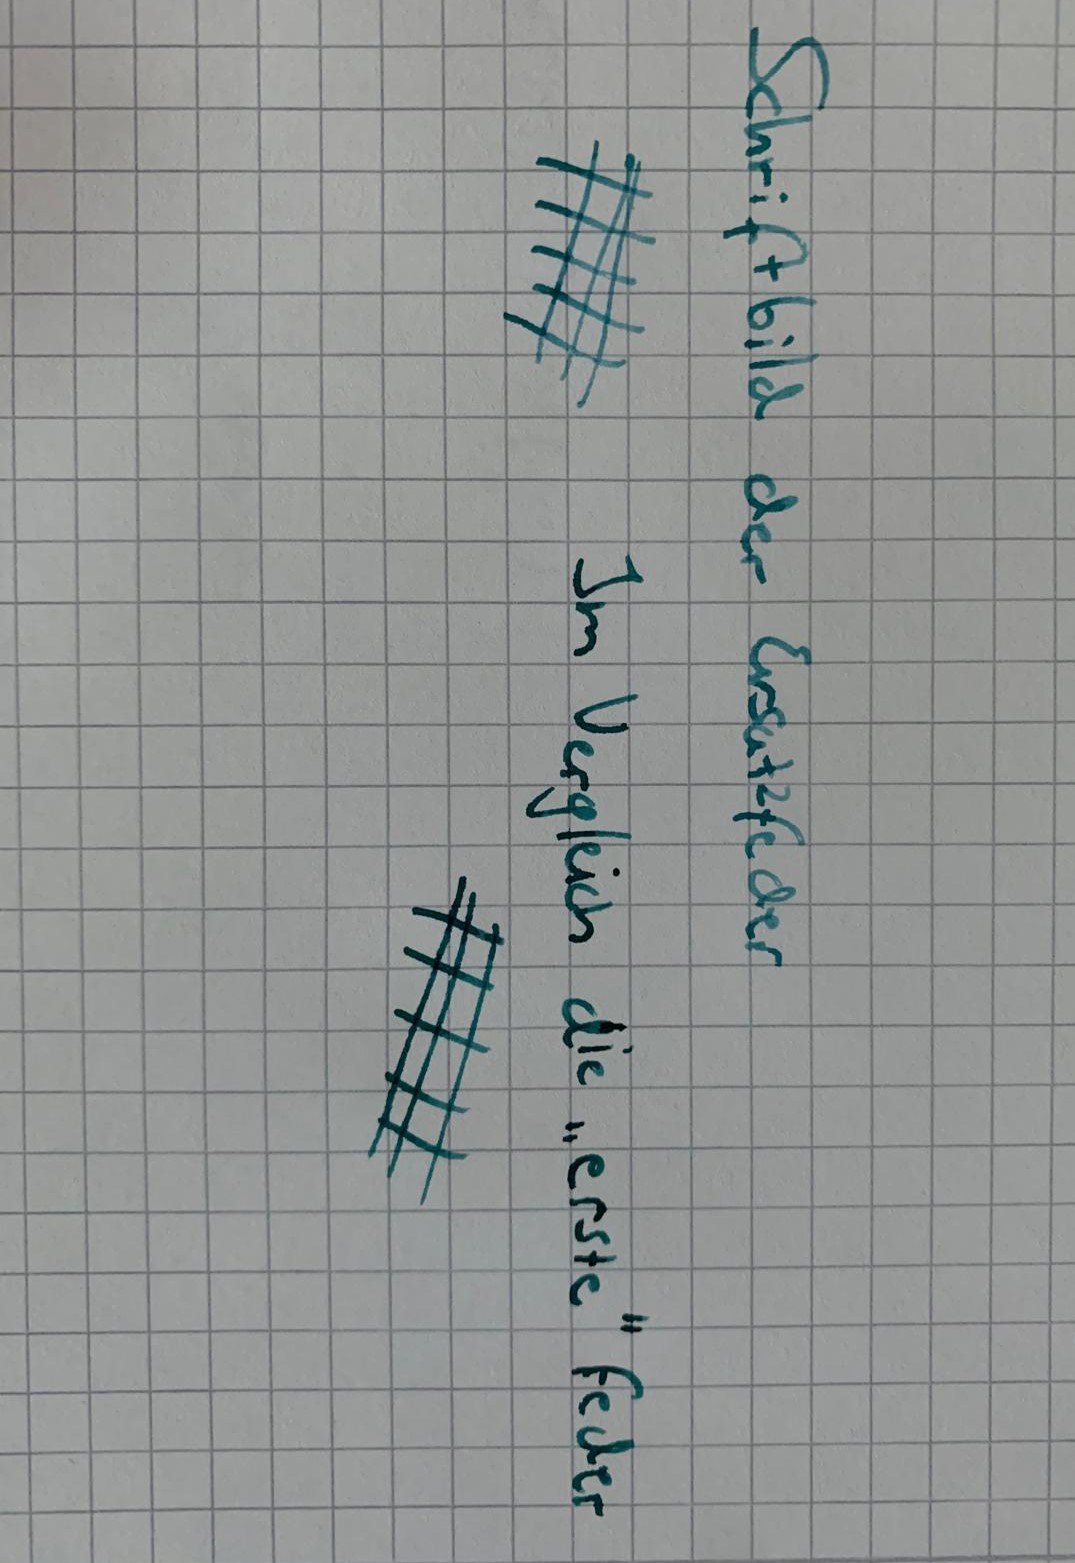 Schriftbild der Ersatzfeder
Im Vergleich die „erste" Feder